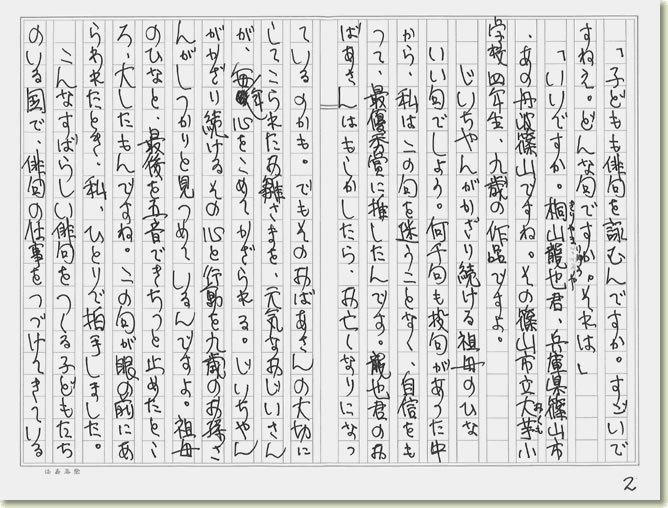 「子どもも俳句を詠むんですか。すごいで
すねえ。どんな句ですか。それは」
「いいですか。桐山龍也君、兵庫県篠山市
、あの丹波篠山ですね。その篠山市立大芋小
学校四年生、九歳の作品ですよ。
じいちゃんがかざり続ける祖母のひな
いい句でしょう。何千句も投句があった中
から、私はこの句を迷うことなく、自信をも
って、最優秀賞に推したんです。龍也君のお
ばあさんはもしかしたら、お亡くなりになっ
ているのかも。でもそのおばあさんの大切に
してこられたお雛さまを、元気なおじいさん
が、毎年心をこめてかざられる。じいちゃん
がかざり続けるその心と行動を九歳のお孫さ
んがしっかりと見つめているんですよ。祖母
のひなと、最後を五音できちっと止めたとこ
ろ、大したもんですね。この句が眼の前にあ
らわれたとき、私、ひとりで拍手しました。
こんなすばらしい俳句をつくる子どもたち
のいる国で、俳句の仕事をつづけてきている
2